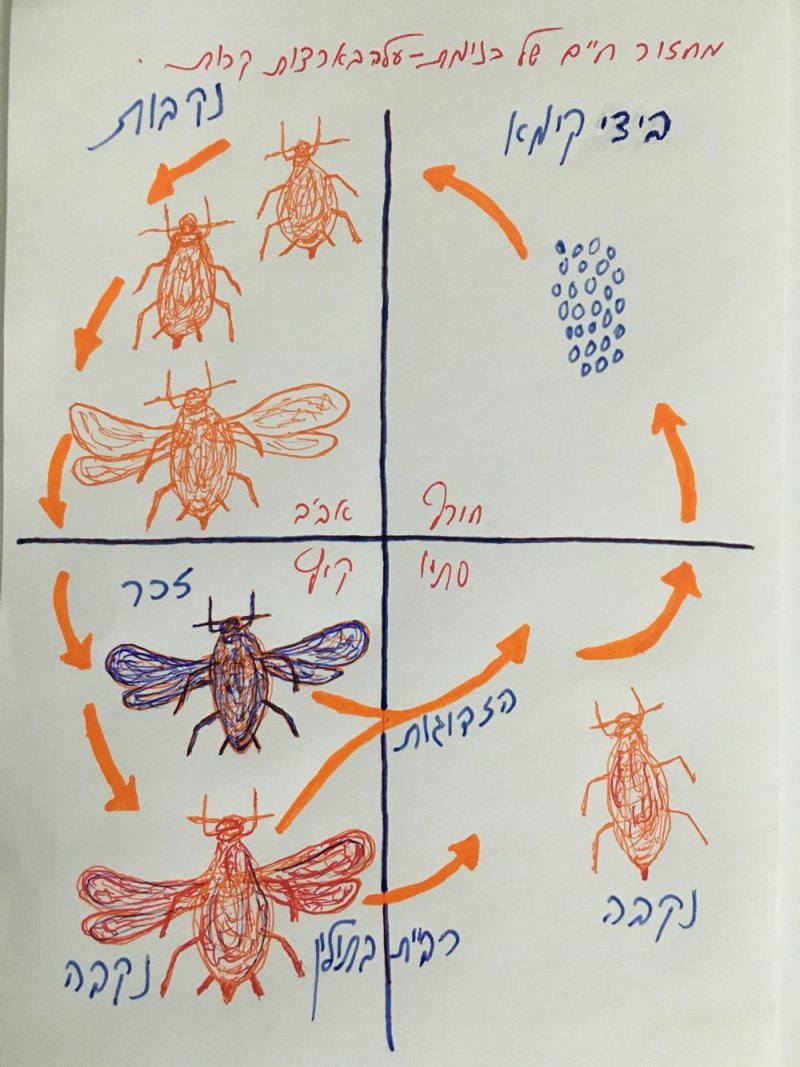 מחזור חיים של כנימת-עלה בארצות קרות.
ביצי קיימא
נקבות
חורף
אביב
סתיו
קיץ
זכר
הזדווגות
נקבה
רביית בתולין
נקבה